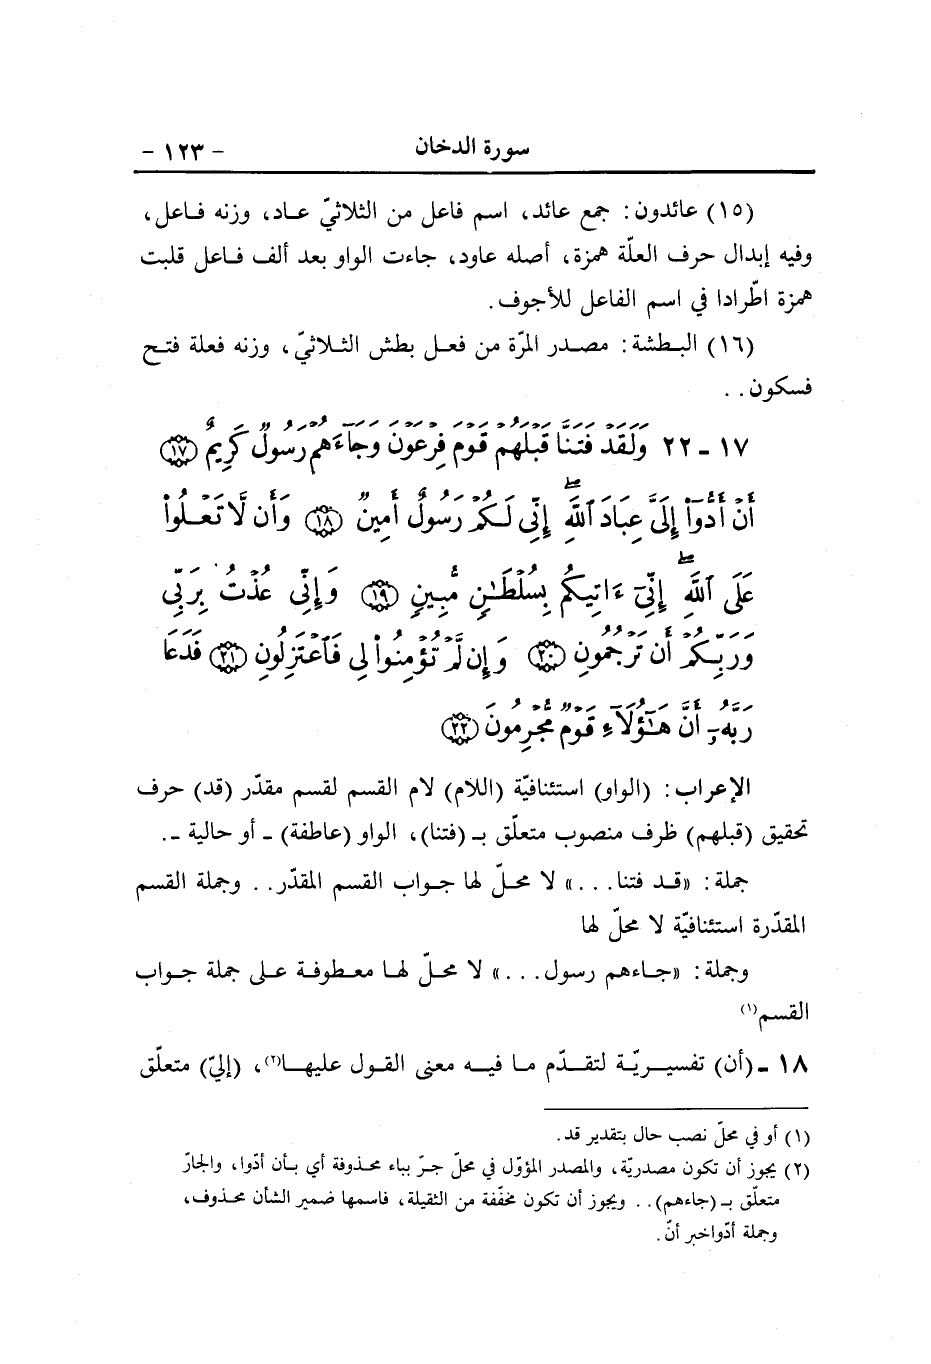 سورة الدخان - ١٢٣ -
(١٥) عائدون: جمع عائد، اسم فاعل من الثلاثيّ عـاد، وزنه فـاعل،
وفيه إبدال حرف العلّة همزة، أصله عاود، جاءت الواو بعد ألف فـاعل قلبت
همزة اطّرادا في اسم الفاعل للأجوف.
(١٦) البـطشة: مصـدر المرّة من فعـل بطش الثـلاثيّ، وزنه فعلة فتـح
فسكون..
١٧ - ٢٢ وَلَقَدْ فَتَنَّا قَبْلَهُمْ قَوْمَ فِرْعَوْنَ وَجَآءَهُمْ رَسُولٌ كَرِيمٌ ﴿١٧﴾
أَنْ أَدُّوٓا۟ إِلَىَّ عِبَادَ ٱللَّهِ ۖ إِنِّى لَكُمْ رَسُولٌ أَمِينٌ ﴿١٨﴾ وَأَن لَّا تَعْلُوا۟
عَلَى ٱللَّهِ ۖ إِنِّىٓ ءَاتِيكُم بِسُلْطَـٰنٍ مُّبِينٍ ﴿١٩﴾ وَإِنِّى عُذْتُ بِرَبِّى
وَرَبِّكُمْ أَن تَرْجُمُونِ ﴿٢٠﴾ وَإِن لَّمْ تُؤْمِنُوا۟ لِى فَٱعْتَزِلُونِ ﴿٢١﴾ فَدَعَا
رَبَّهُۥٓ أَنَّ هَـٰٓؤُلَآءِ قَوْمٌ مُّجْرِمُونَ ﴿٢٢﴾
الإعراب: (الواو) استئنافيّة (اللام) لام القسم لقسم مقدّر (قد) حرف
تحقيق (قبلهم) ظرف منصوب متعلّق بـ (فتنا)، الواو (عاطفة) - أو حالية -.
جملة: «قـد فتنا...» لا محـلّ لها جـواب القسم المقدّر.. وجملة القسم
المقدّرة استئنافيّة لا محلّ لها
وجملة: «جـاءهم رسول...» لا محـلّ لهـا معـطوفـة عـلى جملة جـواب
القسم(١)
١٨ - (أن) تفسيـريّـة لتقـدّم مـا فيـه معنى القـول عليهـا(٢)، (إليّ) متعلّق
(١) أو في محلّ نصب حال بتقدير قد.
(٢) يجوز أن تكون مصدريّة، والمصدر المؤوّل في محلّ جـرّ بباء محـذوفة أي بـأن أدّوا، والجارّ
متعلّق بـ (جاءهم).. ويجوز أن تكون مخفّفة من الثقيلة، فاسمها ضمير الشأن محـذوف،
وجملة أدّوا خبر أنّ.